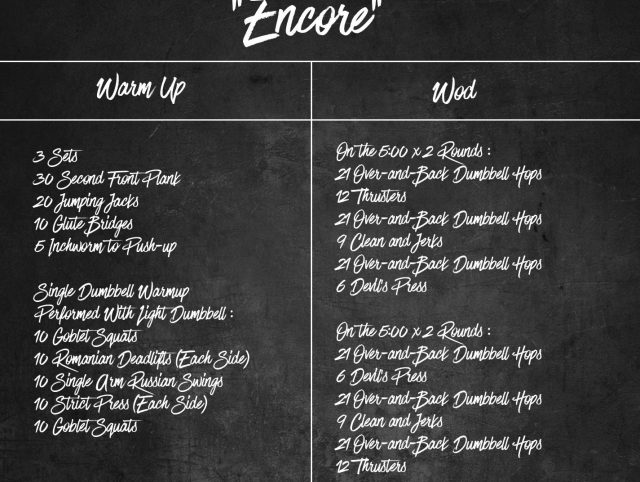 "Encore"
Warm Up
Wod
3 Sets
30 Second Front Plank
20 Jumping Jacks
10 Glute Bridges
5 Inchworm to Push-up
Single Dumbbell Warmup
Performed With Light Dumbbell :
10 Goblet Squats
10 Romanian Deadlifts (Each Side)
10 Single Arm Russian Swings
10 Strict Press (Each Side)
10 Goblet Squats
On the 5:00 x 2 Rounds :
21 Over-and-Back Dumbbell Hops
12 Thrusters
21 Over-and-Back Dumbbell Hops
9 Clean and Jerks
21 Over-and-Back Dumbbell Hops
6 Devil's Press
On the 5:00 x 2 Rounds :
21 Over-and-Back Dumbbell Hops
6 Devil's Press
21 Over-and-Back Dumbbell Hops
9 Clean and Jerks
21 Over-and-Back Dumbbell Hops
12 Thrusters